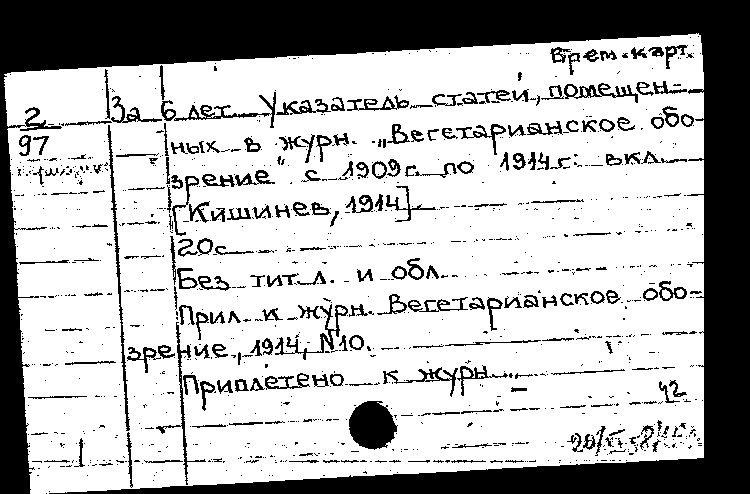 Врем. карт.
2 За 6 лет. Указатель статей, помещен-
97 ных в журн. „Вегетарианское обо-
зрение" с 1909г. по 1914г. вкл.
[Кишинев, 1914].
20с
Без тит.л. и обл.
Прил. к журн. Вегетарианское обо-
зрение, 1914, N10.
Приплетено к журн. „
42